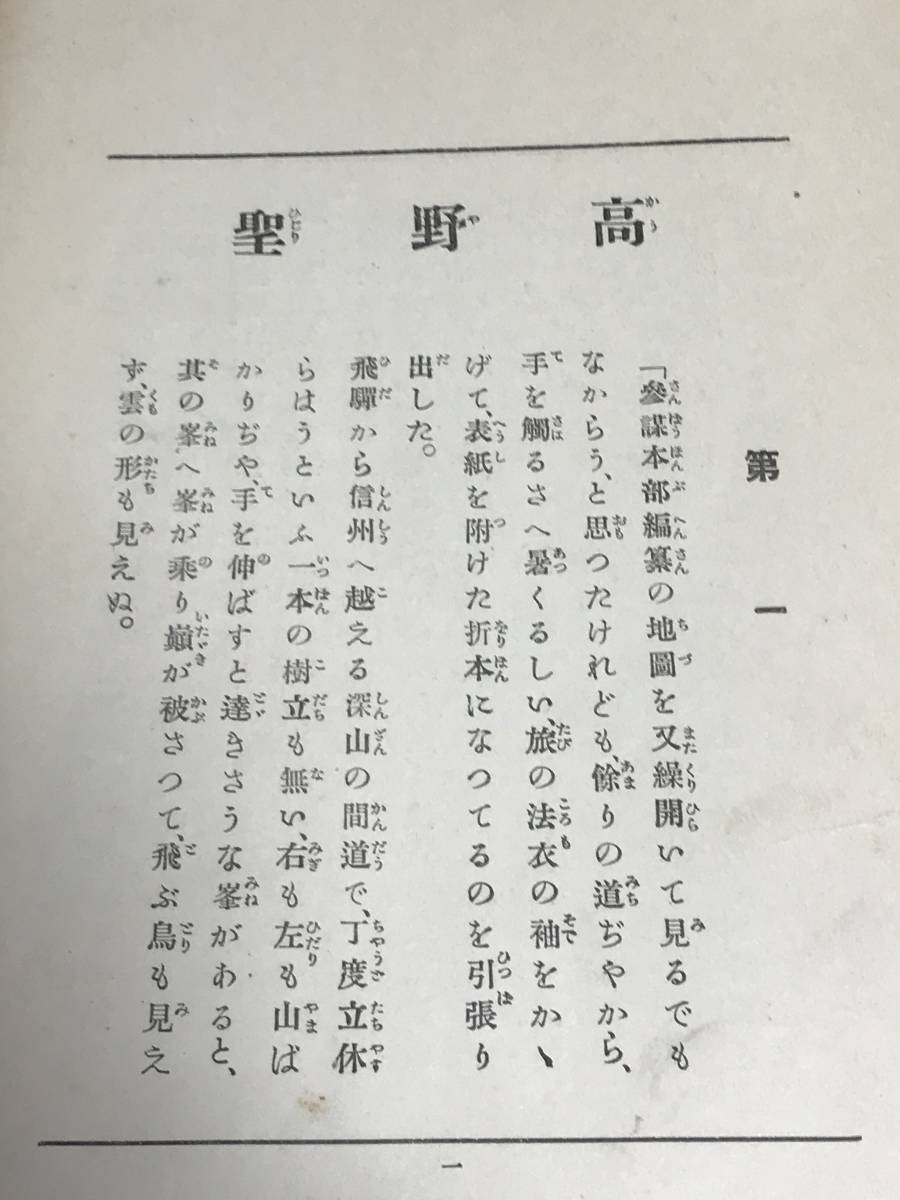 高野聖
かうやひじり
第一
「參謀本部編纂の地圖を又繰開いて見るでも
なからう、と思つたけれども、餘りの道ぢやから、
手を觸るさへ暑くるしい、旅の法衣の袖をかゝ
げて、表紙を附けた折本になつてるのを引張り
出した。
飛驒から信州へ越える深山の間道で、丁度立休
らはうといふ一本の樹立も無い、右も左も山ば
かりぢや、手を伸ばすと達きさうな峯があると、
其の峯へ峯が乘り巓が被さつて、飛ぶ鳥も見え
ず、雲の形も見えぬ。
一